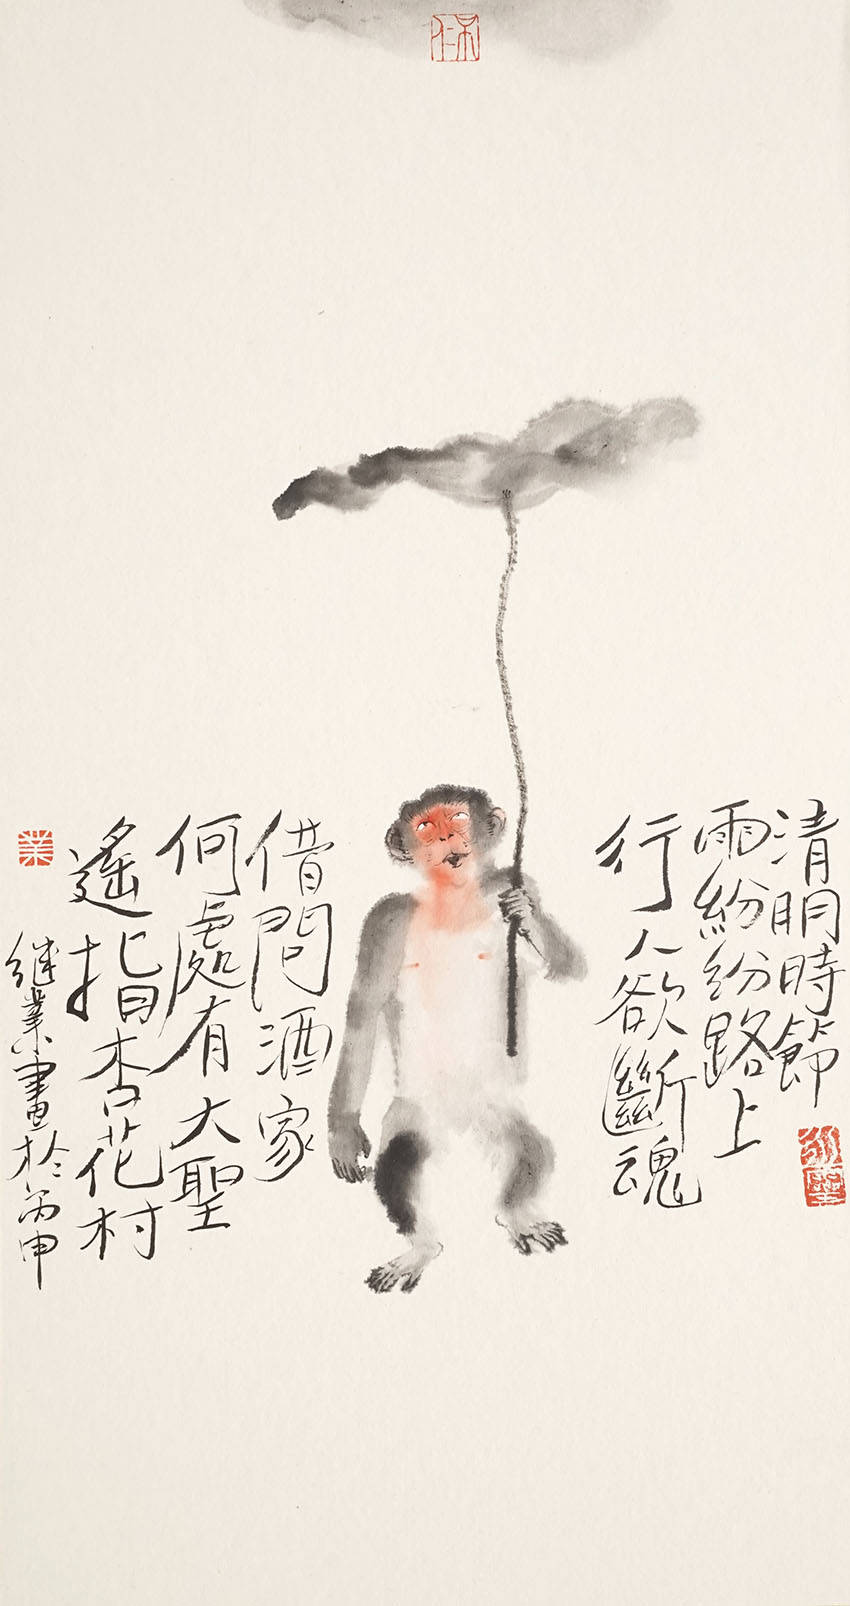 清明時節
雨紛紛路上
行人欲斷魂
借問酒家
何處有大聖
遙指杏花村
继業畫於丙申
業